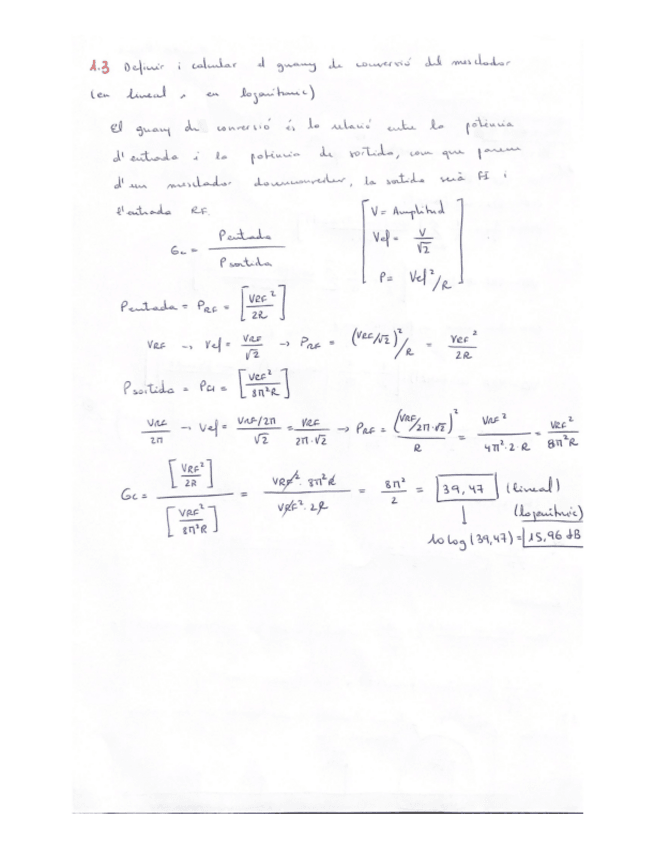 1.3 Definir i calcular el guany de conversió del mesclador
(en lineal i en logarítmic)
El guany de conversió és la relació entre la potència
d'entrada i la potència de sortida, com que parlem
d'un mesclador downconverter, la sortida serà FI i
l'entrada RF.
Gc = Pentrada / Psortida
[V = Amplitud
Vef = V/√2
P = Vef²/R]
Pentrada = PRF = [VRF²/2R]
VRF → Vef = VRF/√2 → PRF = (VRF/√2)²/R = VRF²/2R
Psortida = PFI = [VRF²/8π²R]
VRF/2π → Vef = VRF/2π/√2 = VRF/2π·√2 → PRF = (VRF/2π·√2)²/R = VRF²/4π²·2·R = VRF²/8π²R
Gc = [VRF²/2R]/[VRF²/8π²R] = VRF²·8π²R/VRF²·2R = 8π²/2 = 39,47 (lineal)
↓ (logarítmic)
10 log(39,47) = 15,96 dB